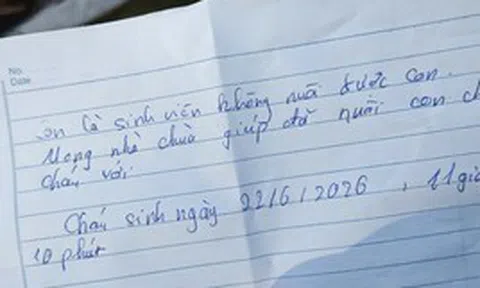 No.
Date
Con là sinh viên không nuôi được con.
Mong nhà chùa giúp đỡ nuôi con ch
cháu với
Cháu sinh ngày 22/6/2026, 11 giờ
10 phút